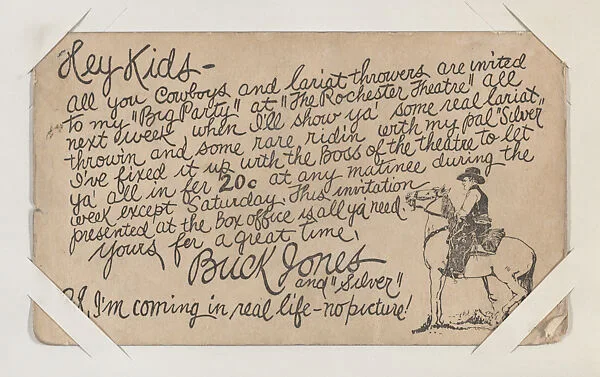 Hey Kids-
all you Cowboys and lariat throwers are invited
to my "Big Party" at "The Rochester Theatre" all
next week when I'll show ya' some real lariat
throwin and some rare ridin' with my pal "Silver"
I've fixed it up with the Boss of the theatre to let
ya' all in fer 20c at any matinee during the
week except Saturday. This invitation
presented at the Box office is all ya' need.
Yours fer a great time!
Buck Jones
and "Silver"
I'm coming in real life-no picture!